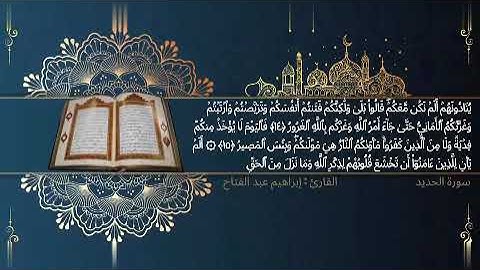 يُنَادُونَهُمْ أَلَمْ نَكُن مَّعَكُمْ ۖ قَالُوا۟ بَلَىٰ وَلَٰكِنَّكُمْ فَتَنتُمْ أَنفُسَكُمْ وَتَرَبَّصْتُمْ وَٱرْتَبْتُمْ
وَغَرَّتْكُمُ ٱلْأَمَانِىُّ حَتَّىٰ جَآءَ أَمْرُ ٱللَّهِ وَغَرَّكُم بِٱللَّهِ ٱلْغَرُورُ ﴿١٤﴾ فَٱلْيَوْمَ لَا يُؤْخَذُ مِنكُمْ
فِدْيَةٌ وَلَا مِنَ ٱلَّذِينَ كَفَرُوا۟ ۚ مَأْوَىٰكُمُ ٱلنَّارُ ۖ هِىَ مَوْلَىٰكُمْ ۖ وَبِئْسَ ٱلْمَصِيرُ ﴿١٥﴾ ۞ أَلَمْ
يَأْنِ لِلَّذِينَ ءَامَنُوٓا۟ أَن تَخْشَعَ قُلُوبُهُمْ لِذِكْرِ ٱللَّهِ وَمَا نَزَلَ مِنَ ٱلْحَقِّ
سورة الحديد القارئ : إبراهيم عبد الفتاح